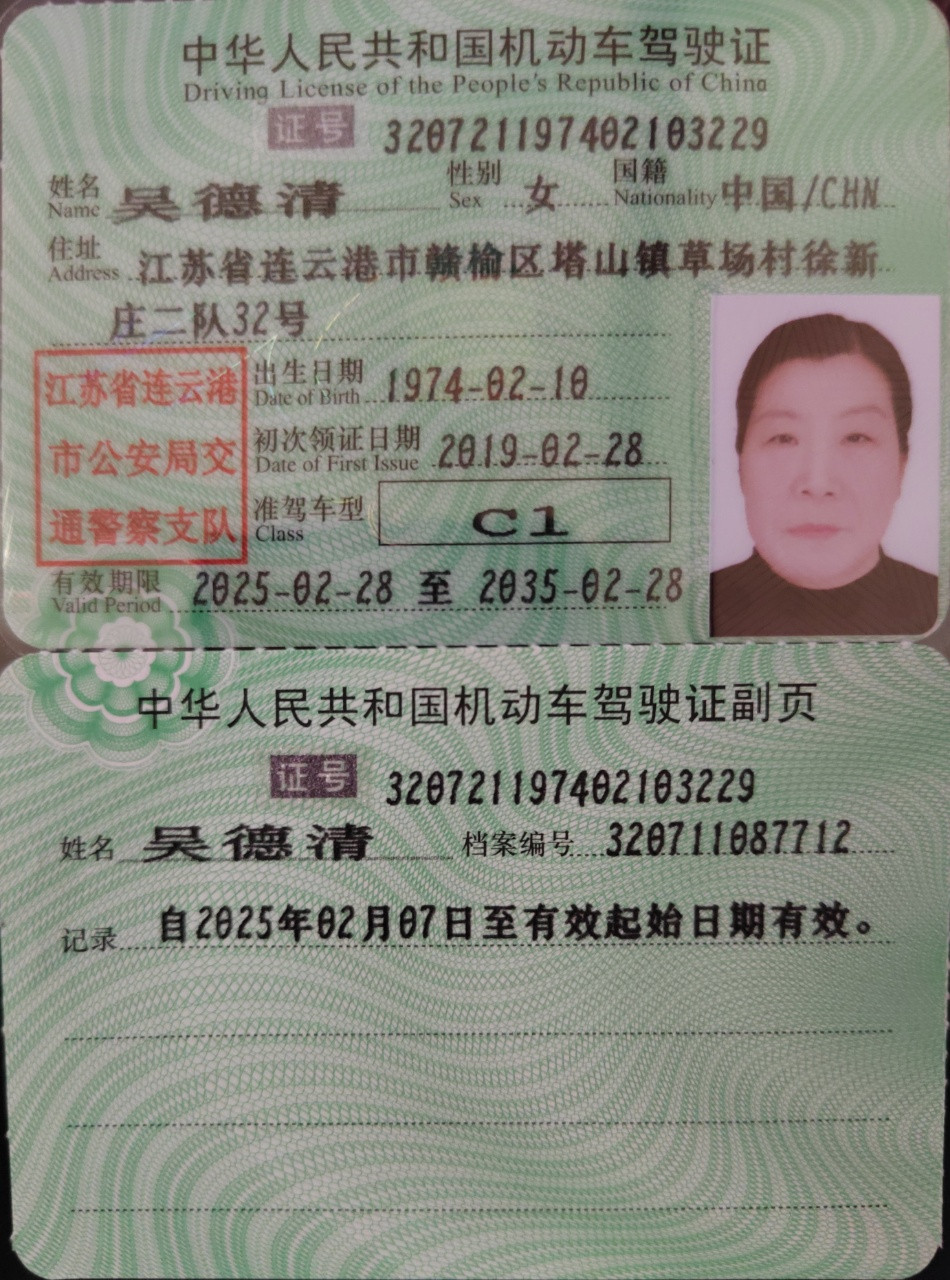 中华人民共和国机动车驾驶证
Driving License of the People's Republic of China
证号 320721197402103229
姓名 Name 吴德清 性别 Sex 女 国籍 Nationality 中国/CHN
住址 Address 江苏省连云港市赣榆区塔山镇草场村徐新
庄二队32号
江苏省连云港
市公安局交
通警察支队
出生日期 Date of Birth 1974-02-10
初次领证日期 Date of First Issue 2019-02-28
准驾车型 Class C1
有效期限 Valid Period 2025-02-28 至 2035-02-28
中华人民共和国机动车驾驶证副页
证号 320721197402103229
姓名 吴德清 档案编号 320711087712
记录 自2025年02月07日至有效起始日期有效。